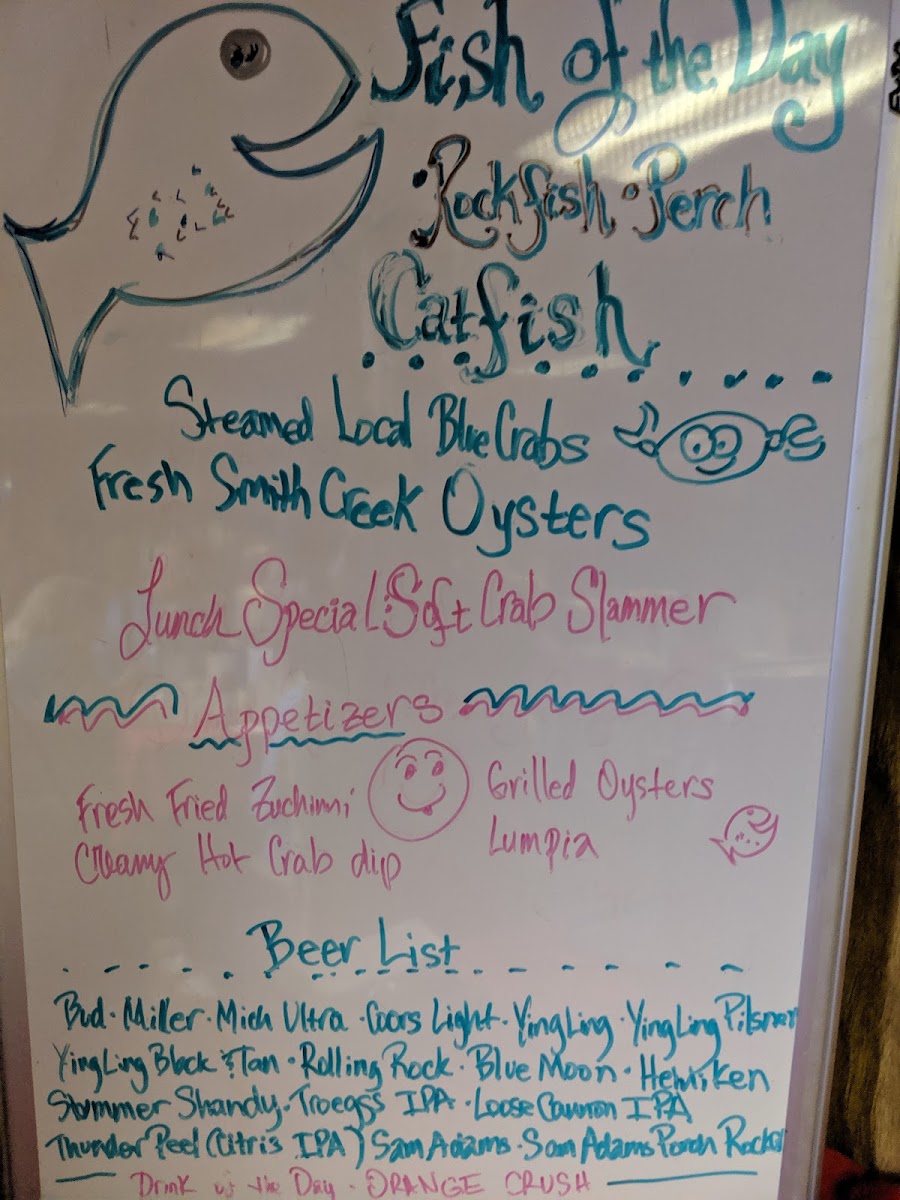 Fish of the Day
• Rockfish • Perch
Catfish
Steamed Local Blue Crabs
Fresh Smith Creek Oysters
Lunch Special: Soft Crab Slammer
Appetizers
Fresh Fried Zuchinni
Grilled Oysters
Creamy Hot Crab dip
Lumpia
Beer List
Bud • Miller • Mich Ultra • Coors Light • YingLing • YingLing Pilsner
YingLing Black & Tan • Rolling Rock • Blue Moon • Heiniken
Summer Shandy • Troegs IPA • Loose Cannon IPA
Thunder Peel (Citris IPA) Sam Adams • Sam Adams Porch Rocker
Drink of the Day - ORANGE CRUSH